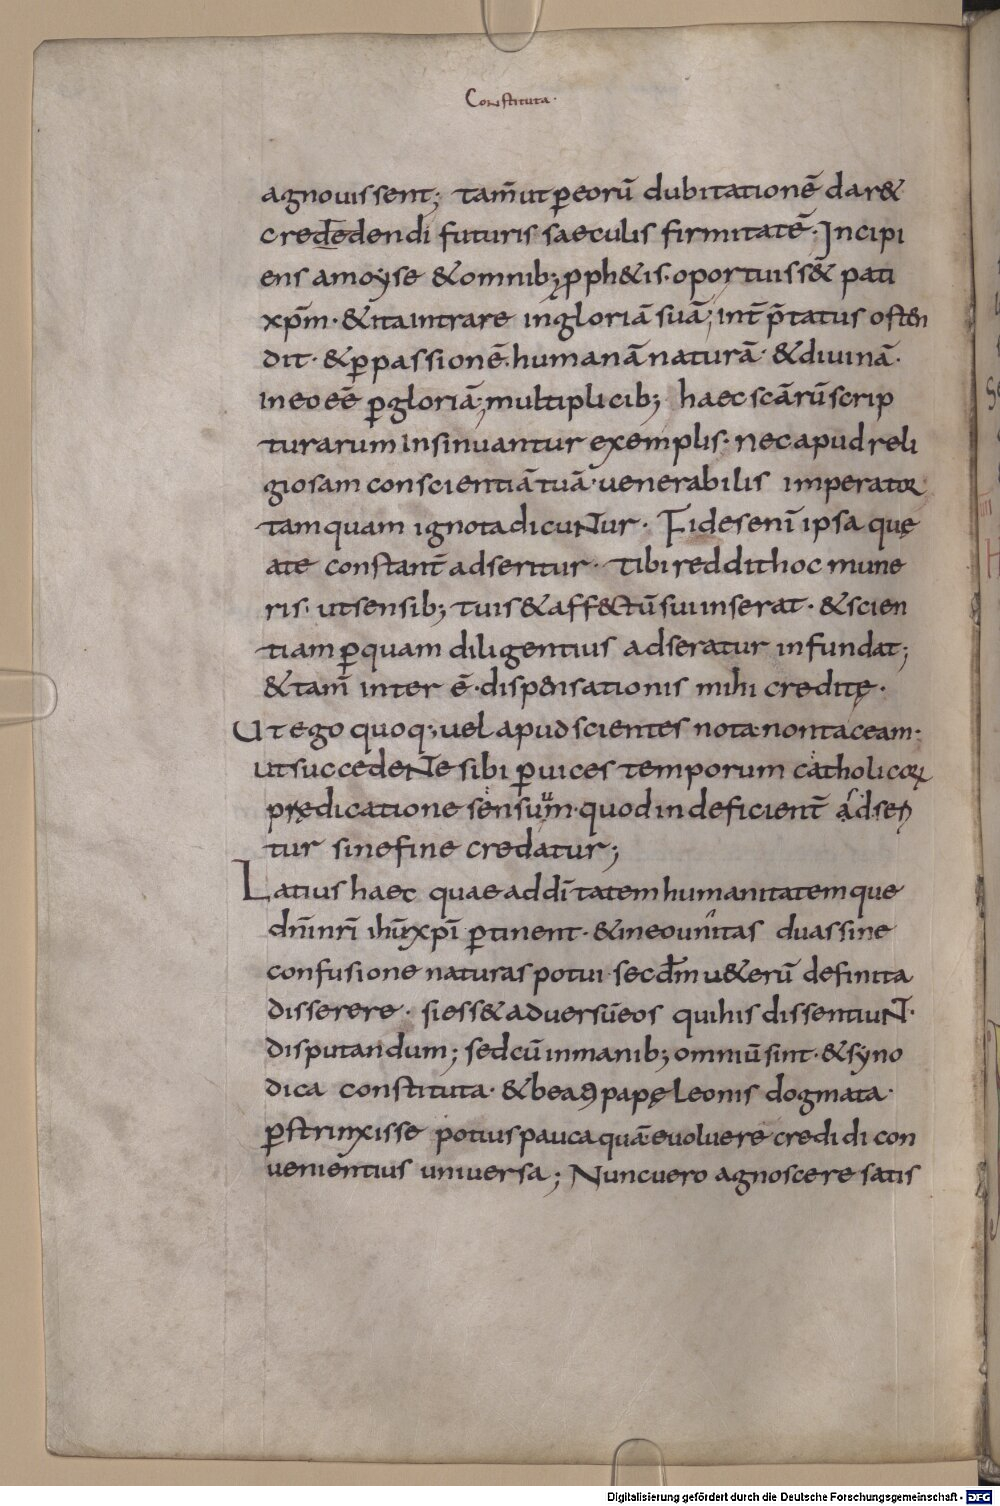 Constituta·
agnouissent; tam̄ ut ꝑ eorū dubitationē dar&
credededendi futuris saeculis firmitatē· Incipi
ens amoyse & omnib; ꝓph&is· oportuiss& pati
xp̄m· & ita intrare in gloriā suā; int̄ p̄tatus osten
dit· & ꝑ passionē· humanā naturā· & diuinā·
in eo eē ꝑ gloriā; multiplicib; haec scārū scrip
turarum insinuantur exemplis· nec apud reli
giosam conscientiā tuā· uenerabilis imperator
tamquam ignota dicuntur· Fides enī ipsa quę
a te constant̄ adseritur· tibi reddit hoc mune
ris· ut sensib; tuis & aff&tū sui inserat· & scien
tiam ꝑquam diligentius adseratur infundat;
& tam̄ inter ē· dispensationis mihi creditę·
Ut ego quoq; uel apud scientes nota non taceam·
ut succedente sibi ꝑ uices temporum catholicorꝝ
prędicatione sensuum· quod indeficient̄ adseri
tur sine fine credatur;
Latius haec quae ad diītatem humanitatemque
dn̄i nr̄i ihū xpī ꝑtinent· & in eo unitas duas sine
confusione naturas potui secdm̄ u&erū definita
disserere· si ess& aduersū eos qui his dissentiunt·
disputandum; sed cū in manib; omniū sint· & syno
dica constituta· & beati papę Leonis dogmata·
ꝑstrinxisse potius pauca quā euoluere credidi con
uenientius uniuersa; Nunc uero agnoscere satis
Digitalisierung gefördert durch die Deutsche Forschungsgemeinschaft - DFG